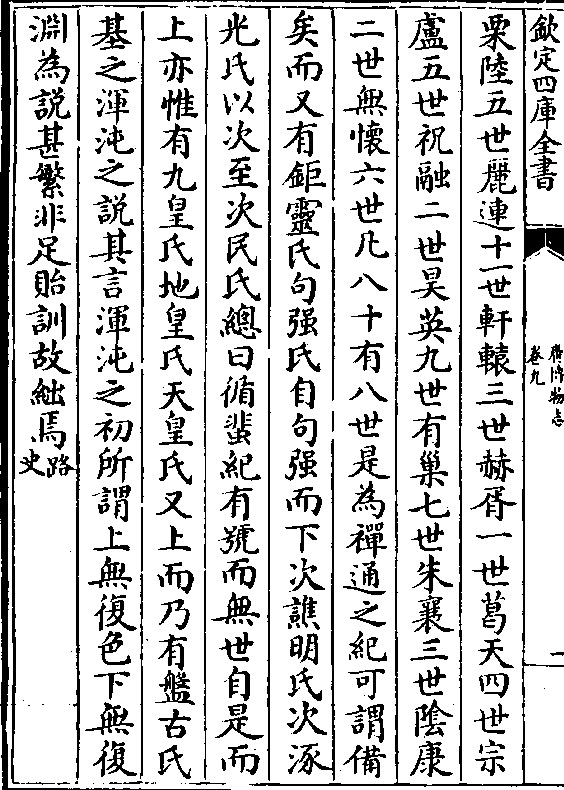 欽定四庫全書
廣博物志
卷九
一
栗陸五世麗連十一世軒轅三世赫胥一世葛天四世宗
盧五世祝融二世昊英九世有巢七世朱襄三世陰康
二世無懷六世凡八十有八世是為禪通之紀可謂備
矣而又有鉅靈氏句强氏自句强而下次譙明氏次涿
光氏以次至次民氏總曰循蜚紀有號而無世自是而
上亦惟有九皇氏地皇氏天皇氏又上而乃有盤古氏
基之渾沌之說其言渾沌之初所謂上無復色下無復
淵為說甚繁非足貽訓故絀焉路史